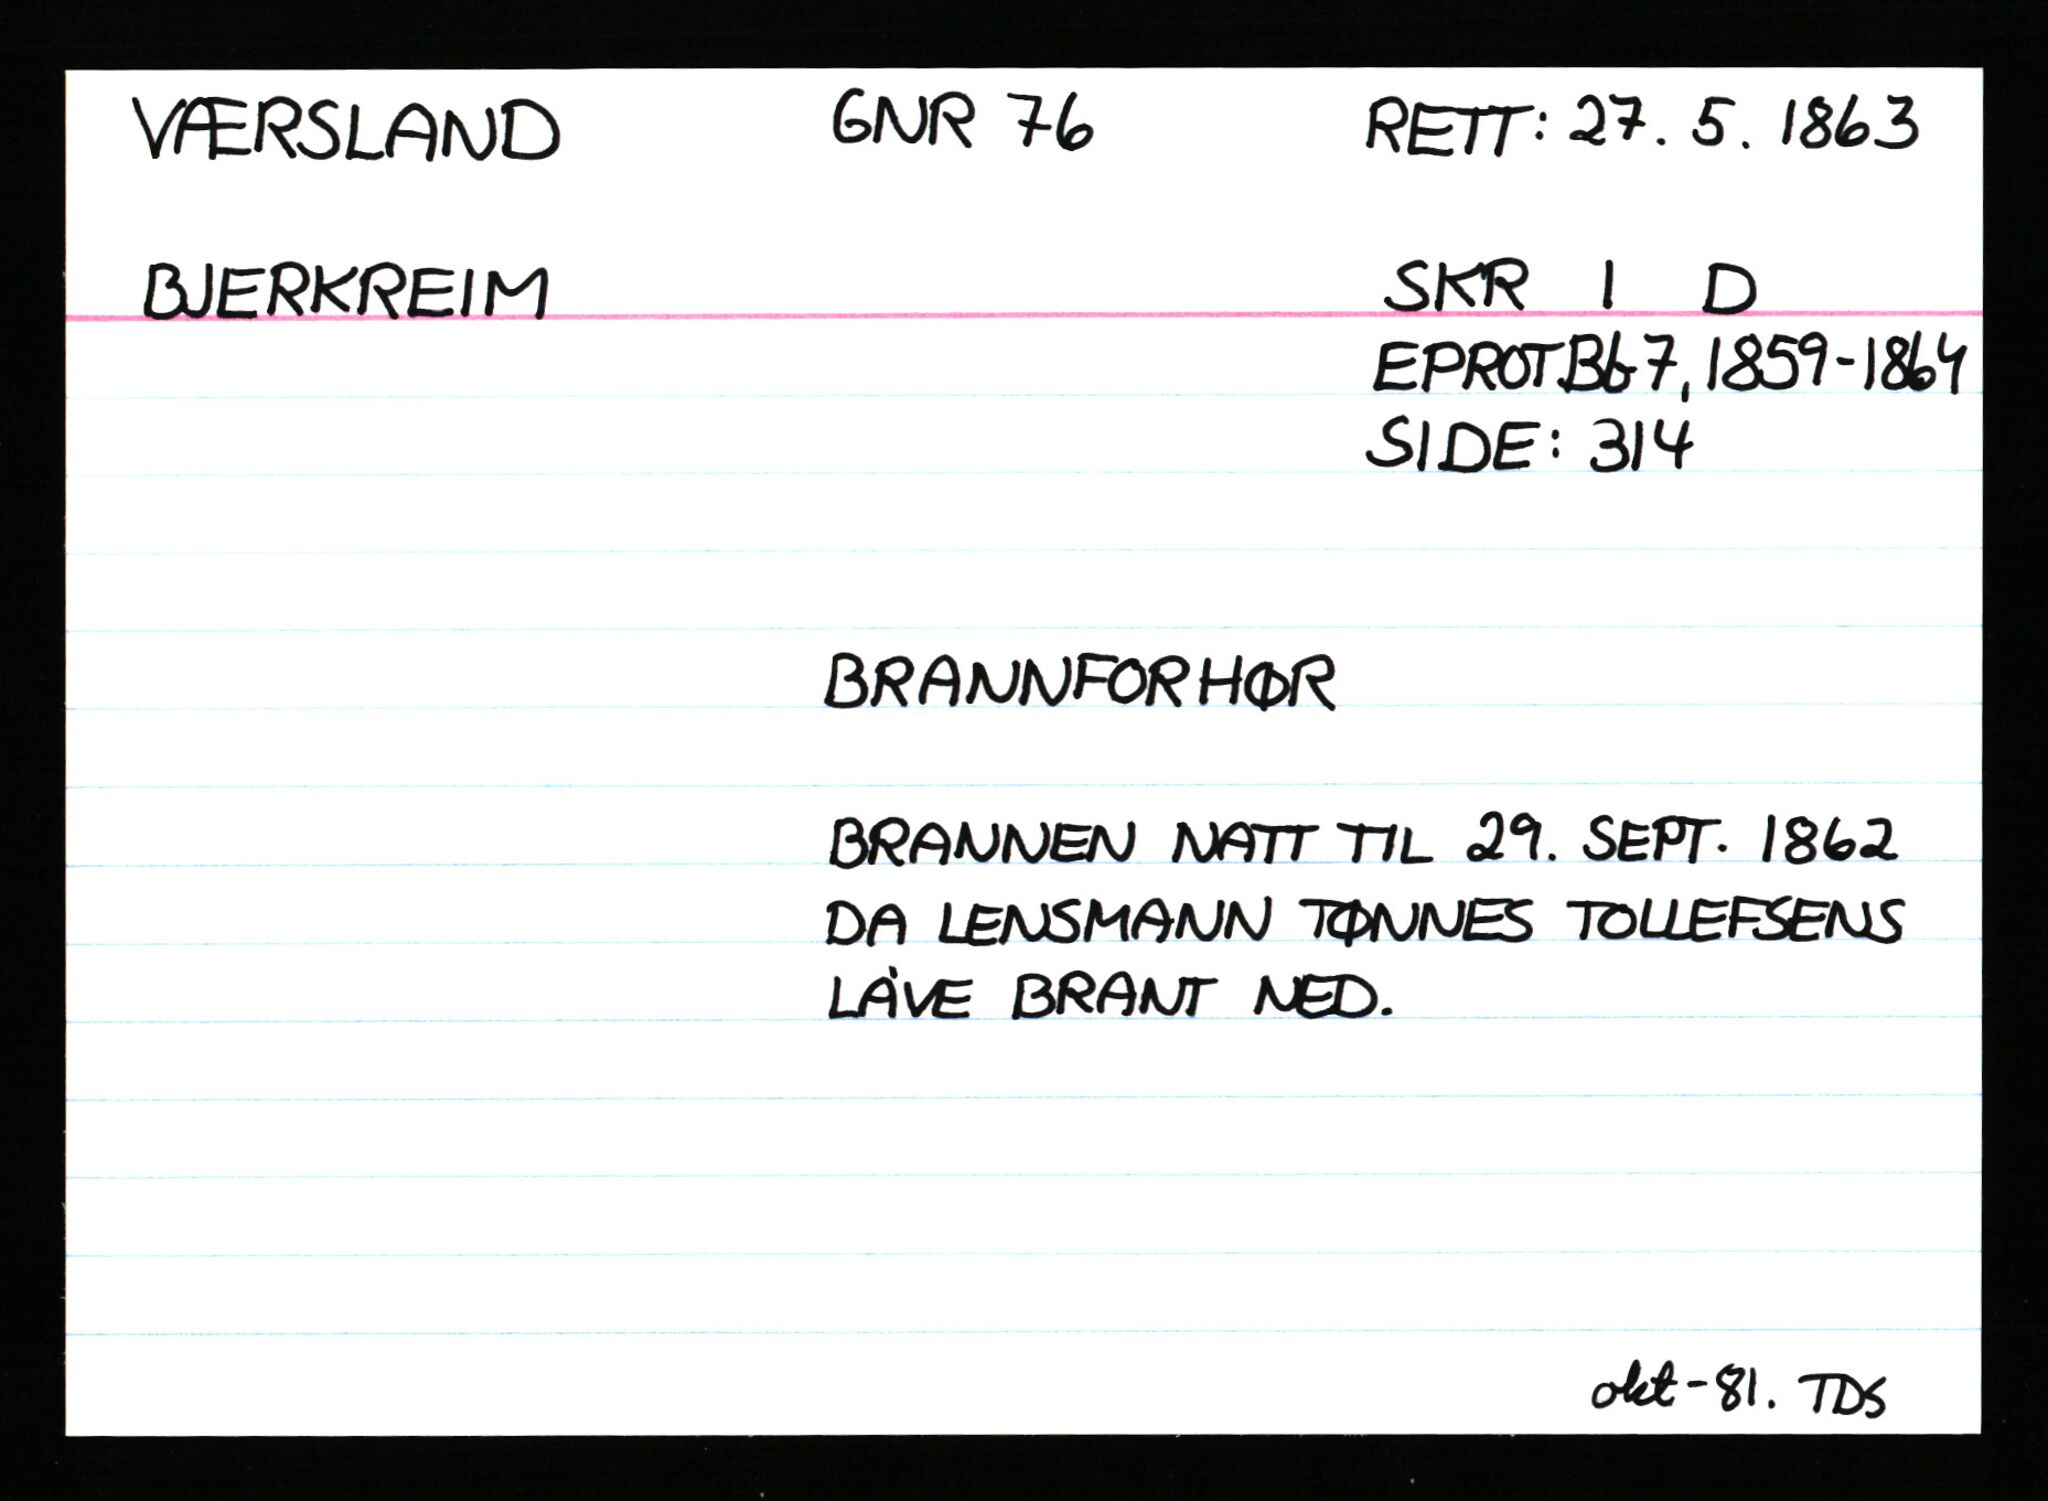 VÆRSLAND GNR 76 RETT: 27. 5. 1863
BJERKREIM SKR I D
EPROT.B67, 1859-1864
SIDE: 314
BRANNFORHØR
BRANNEN NATT TIL 29. SEPT. 1862
DA LENSMANN TØNNES TOLLEFSENS
LÅVE BRANT NED.
okt-81. TDS